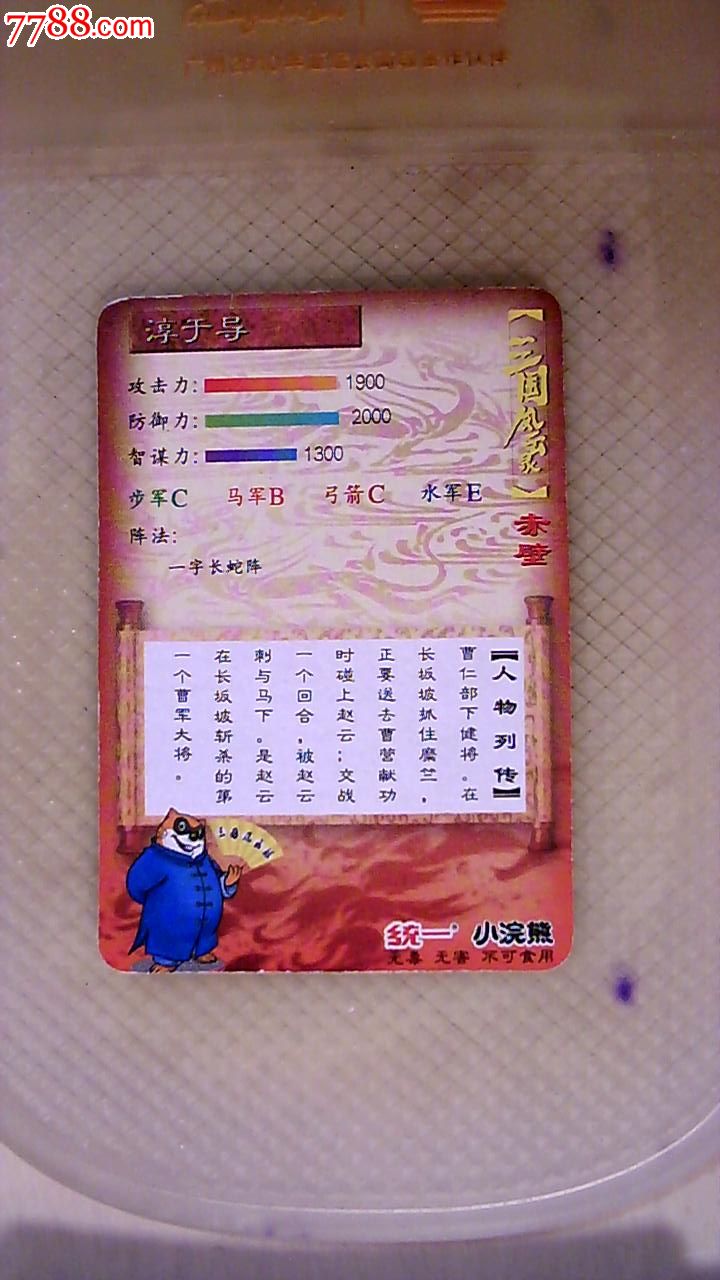 7788.com
淳于导
攻击力: 1900
防御力: 2000
智谋力: 1300
步军C 马军B 弓箭C 水军E
阵法:
一字长蛇阵
【三国风云】
赤壁
【人物列传】
曹仁部下健将。在
长坂坡抓住糜竺，
正要送去曹营献功
时碰上赵云；交战
一个回合，被赵云
刺与马下。是赵云
在长坂坡斩杀的第
一个曹军大将。
统一 小浣熊
无毒 无害 不可食用